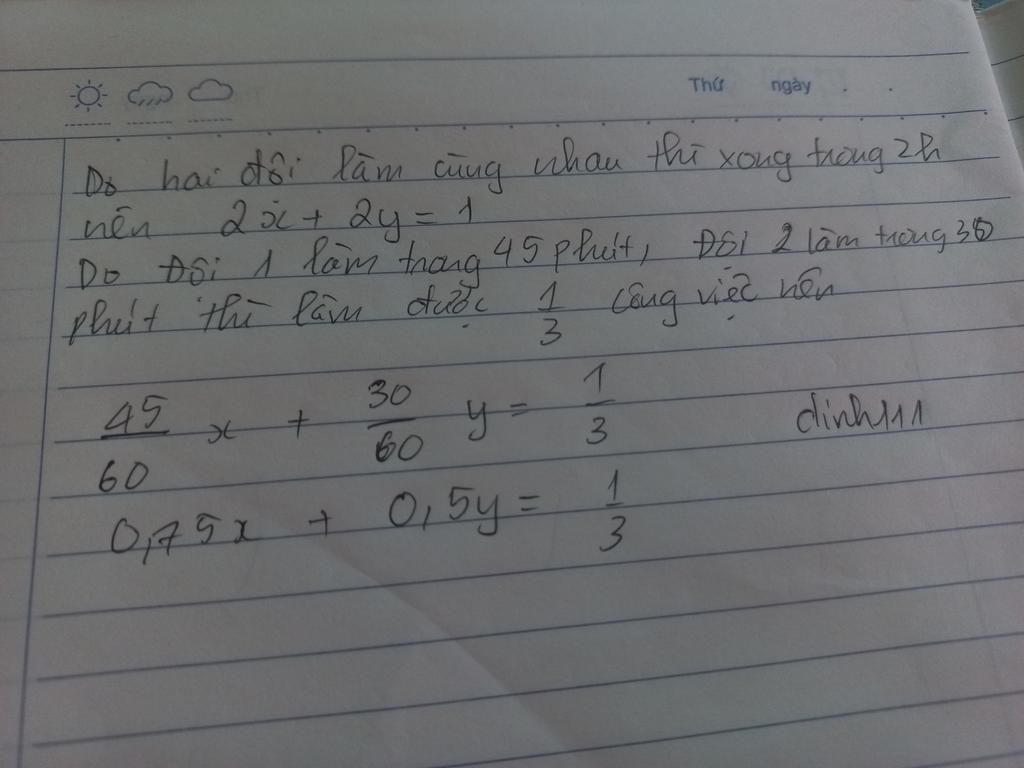 Thứ ngày . .
Do hai đội làm cùng nhau thì xong trong 2h
nên 2x + 2y = 1
Do Đội 1 làm trong 45 phút, Đội 2 làm trong 30
phút thì làm được 1/3 công việc nên
45/60 x + 30/60 y = 1/3 dinh111
0,75x + 0,5y = 1/3